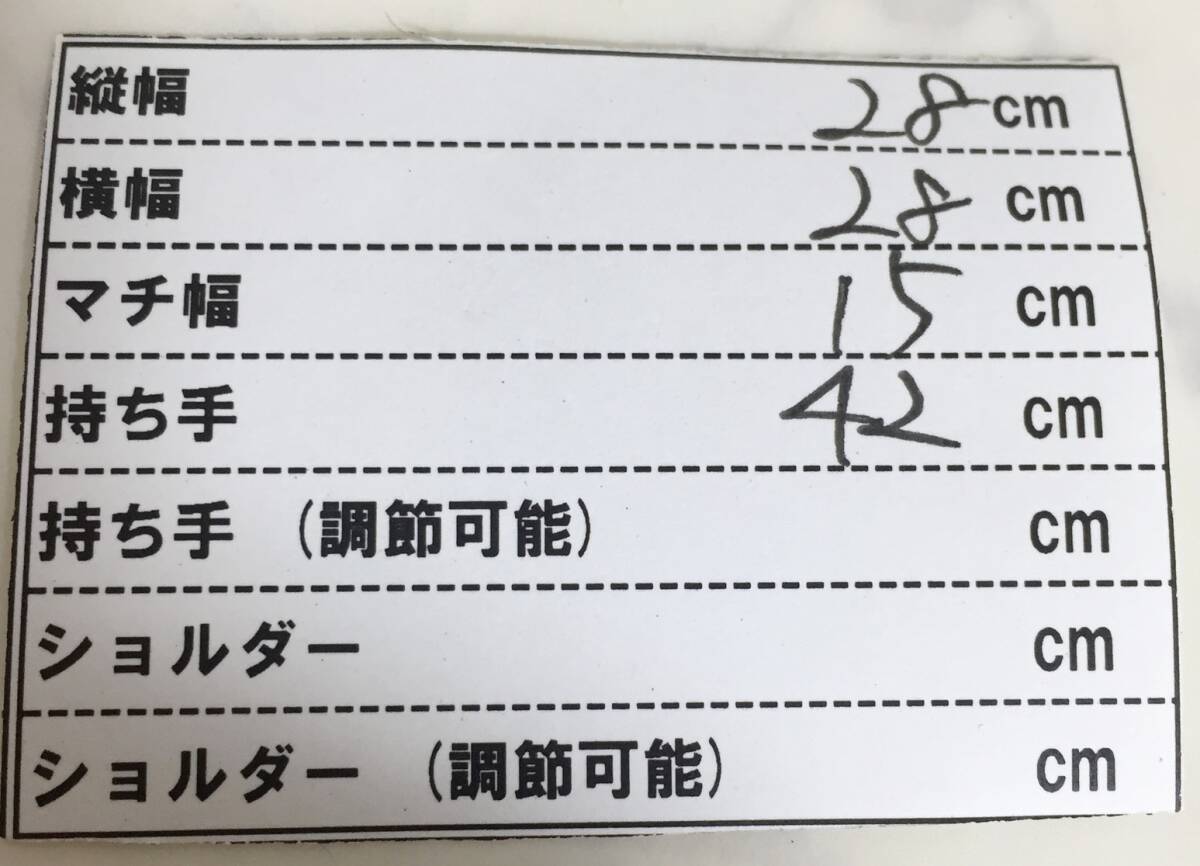 縦幅 28 cm
横幅 28 cm
マチ幅 15 cm
持ち手 42 cm
持ち手 (調節可能) cm
ショルダー cm
ショルダー (調節可能) cm